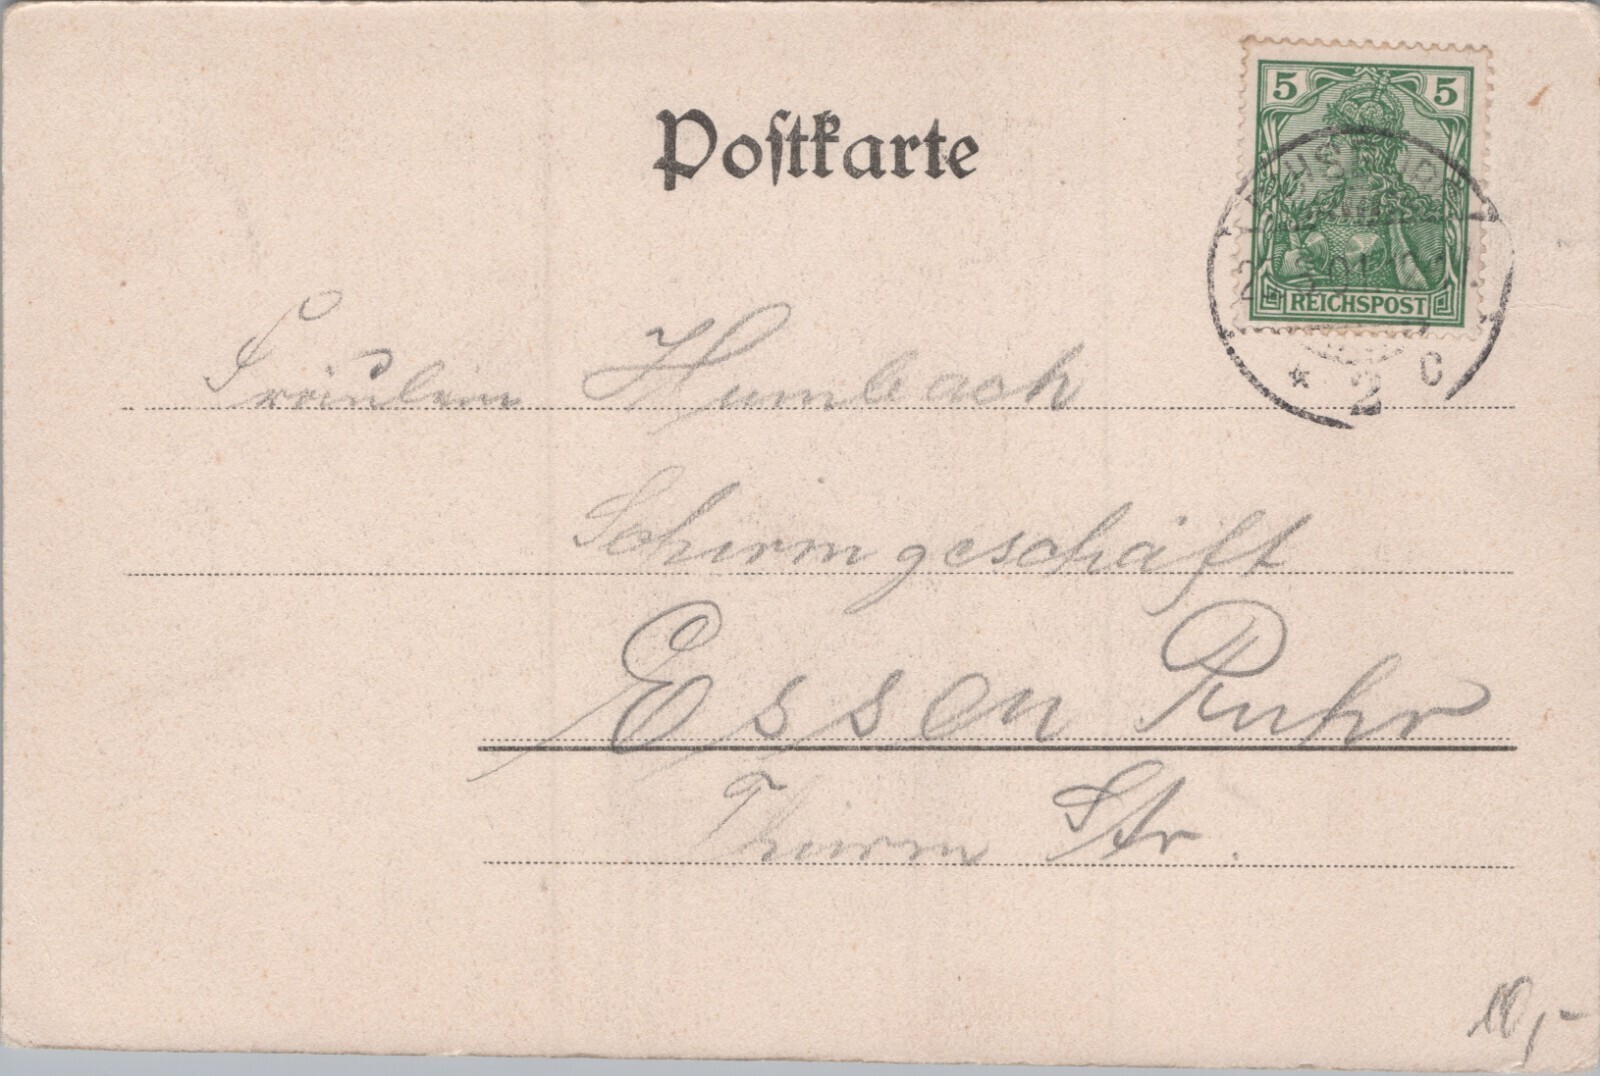 Postkarte
5 5
REICHSPOST
* 2 C
Fräulein Humbach
Schirmgeschäft
Essen Ruhr
Thurm Str.
10,-